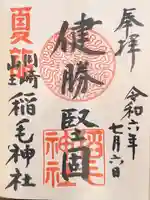 奉拝
令和六年
七月六日
健勝
堅固
夏詣
川崎
山王
稲毛神社
稲毛
神社